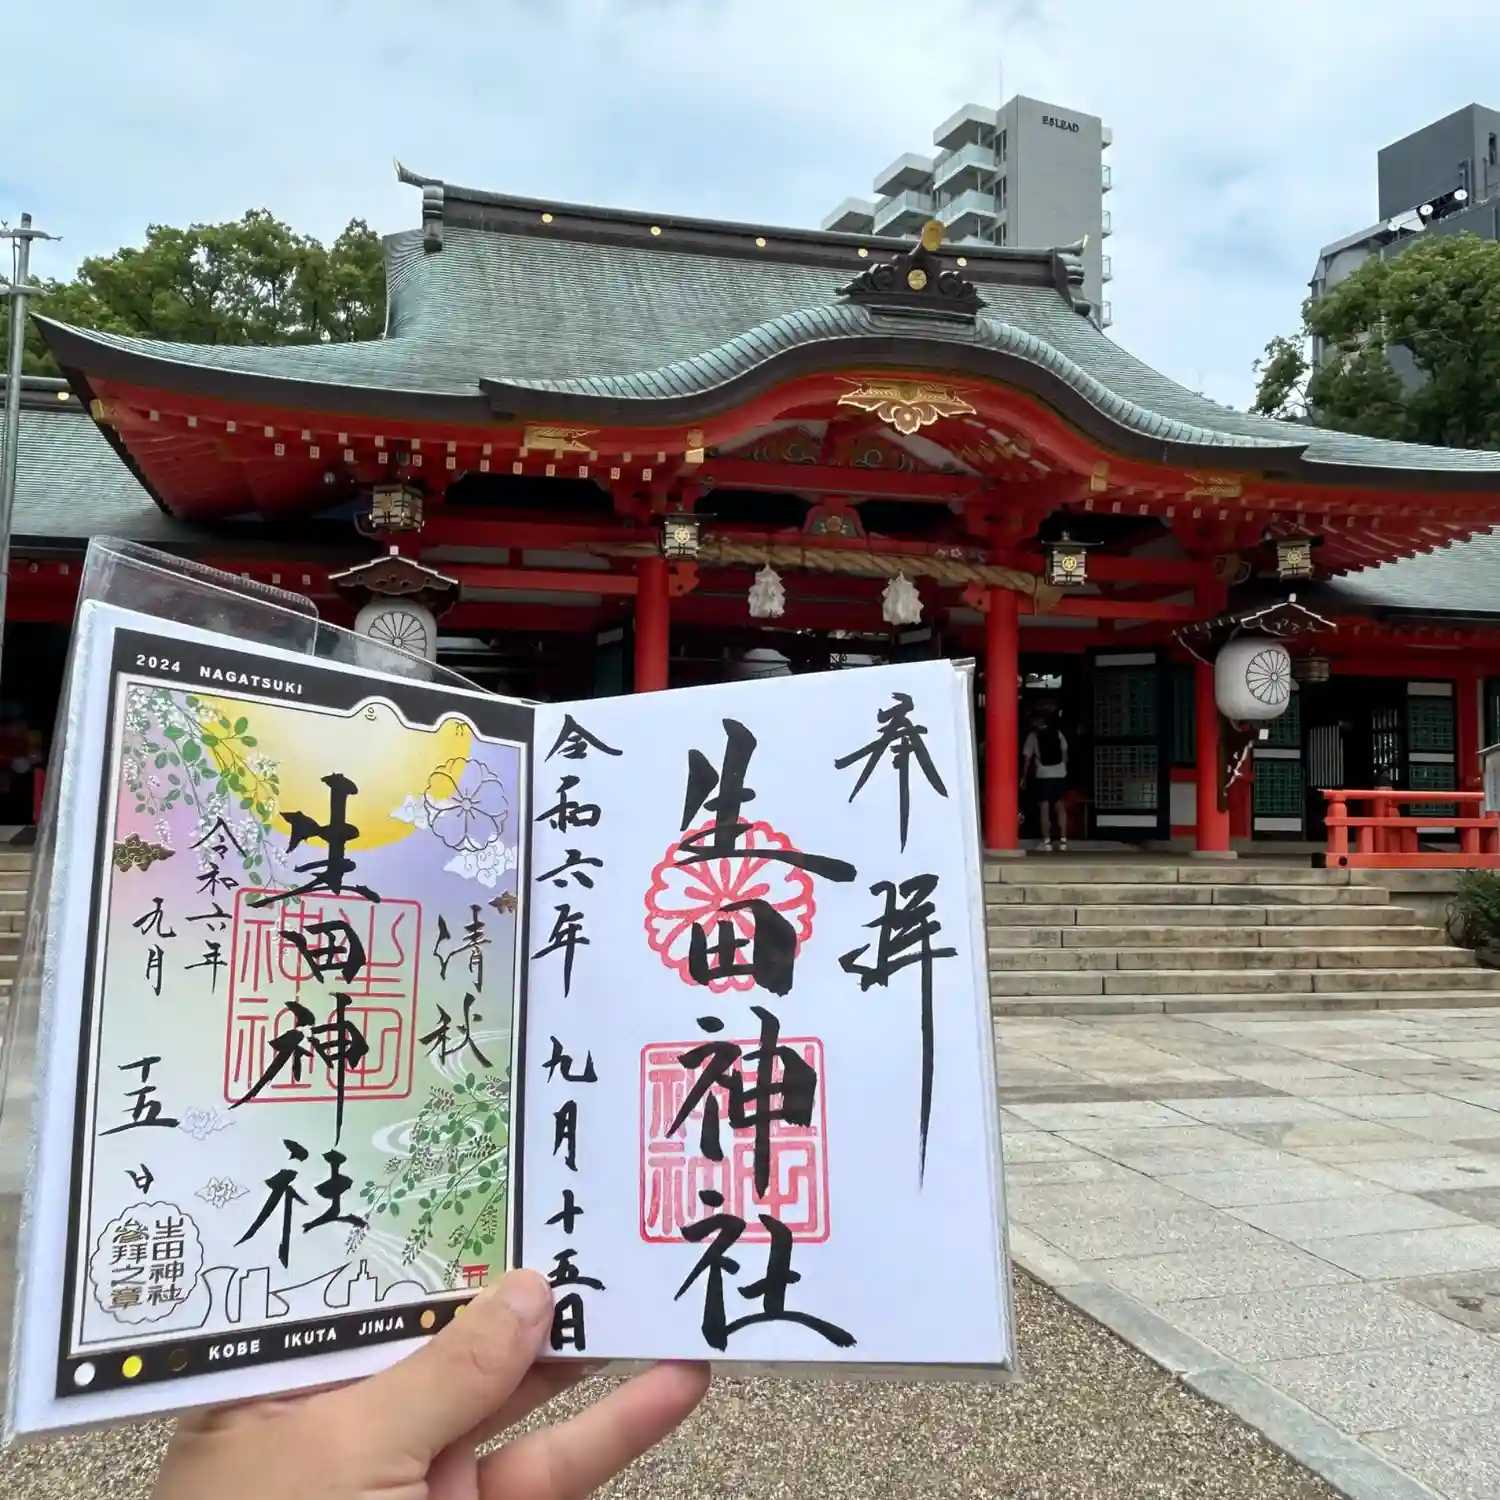 ESLEAD
2024 NAGATSUKI
清秋
生田神社
令和六年
九月
十五日
生田神社
生田神社
参拝之章
KOBE IKUTA JINJA
奉拝
生田神社
生田神社
令和六年 九月十五日